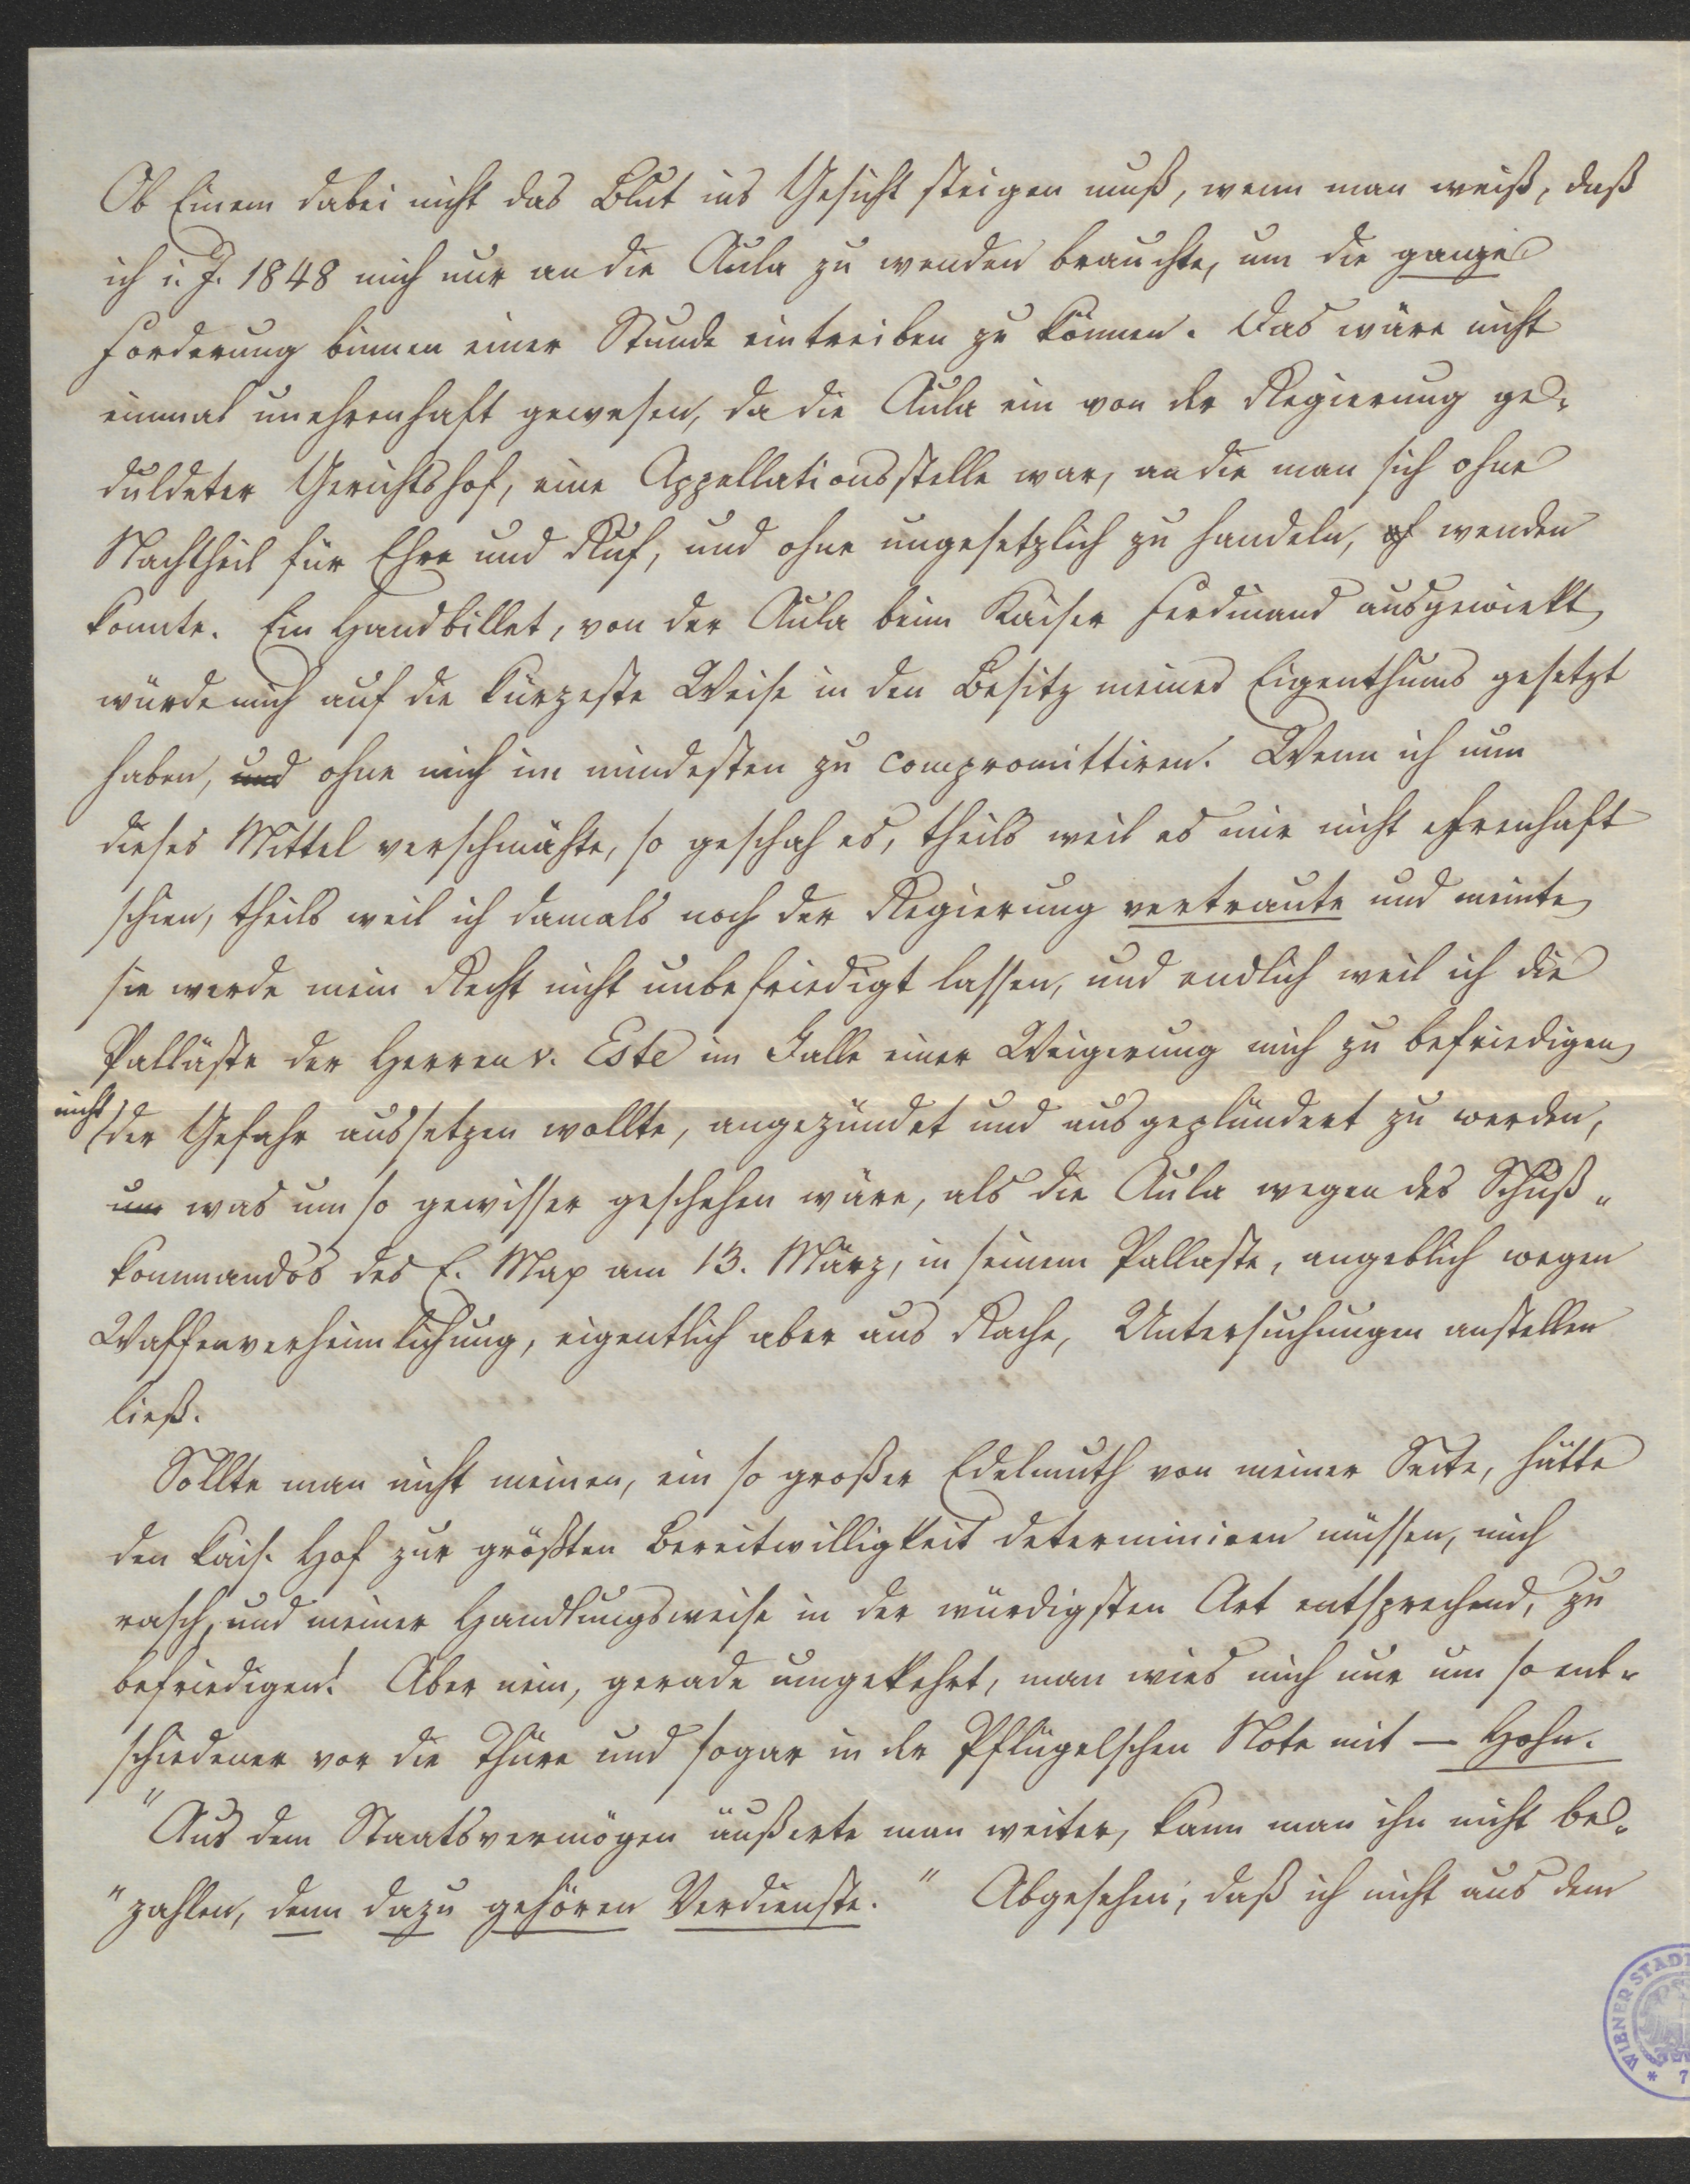 Ob Einem dabei nicht das Blut ins Gesicht steigen muß, wenn man weiß, daß
ich i. J. 1848 mich nur an die Aula zu wenden brauchte, um die ganze
Forderung binnen einer Stunde eintreiben zu können. Das wäre nicht
einmal unehrenhaft gewesen, da die Aula ein von der Regierung ge-
duldeter Gerichtshof, eine Appellationsstelle war, an die man sich ohne
Nachtheil für Ehre und Ruf, und ohne ungesetzlich zu handeln, wenden
konnte. Ein Handbillet, von der Aula beim Kaiser Ferdinand ausgewirkt,
würde mich auf die kürzeste Weise in den Besitz meines Eigenthums gesetzt
haben, und ohne mich im mindesten zu compromittiren. Wenn ich nun
dieses Mittel verschmähte, so geschah es, theils weil es mir nicht ehrenhaft
schien, theils weil ich damals noch der Regierung vertraute und meinte,
sie werde mein Recht nicht unbefriedigt lassen, und endlich weil ich die
Palläste der Herren v. Este im Falle einer Weigerung mich zu befriedigen,
nicht der Gefahr aussetzen wollte, angezündet und ausgeplündert zu werden,
um was um so gewisser geschehen wäre, als die Aula wegen des Schuß-
kommandos des E. Max am 13. März, in seinem Pallaste, angeblich wegen
Waffenverheimlichung, eigentlich aber aus Rache, Untersuchungen anstellen
ließ.
Sollte man nicht meinen, ein so großer Edelmuth von meiner Seite, hätte
den kais. Hof zur größten Bereitwilligkeit determiniren müssen, mich
rasch, und meiner Handlungsweise in der würdigsten Art entsprechend, zu
befriedigen! Aber nein, gerade umgekehrt, man wies mich nur um so ent-
schiedener vor die Thüre und sogar in der Pflügelschen Note mit — Hohn.
"Aus dem Staatsvermögen äußerte man weiter, kann man ihn nicht be-
"zahlen, denn dazu gehören Verdienste." Abgesehen, daß ich nicht aus dem
WIENER STADT
* 7